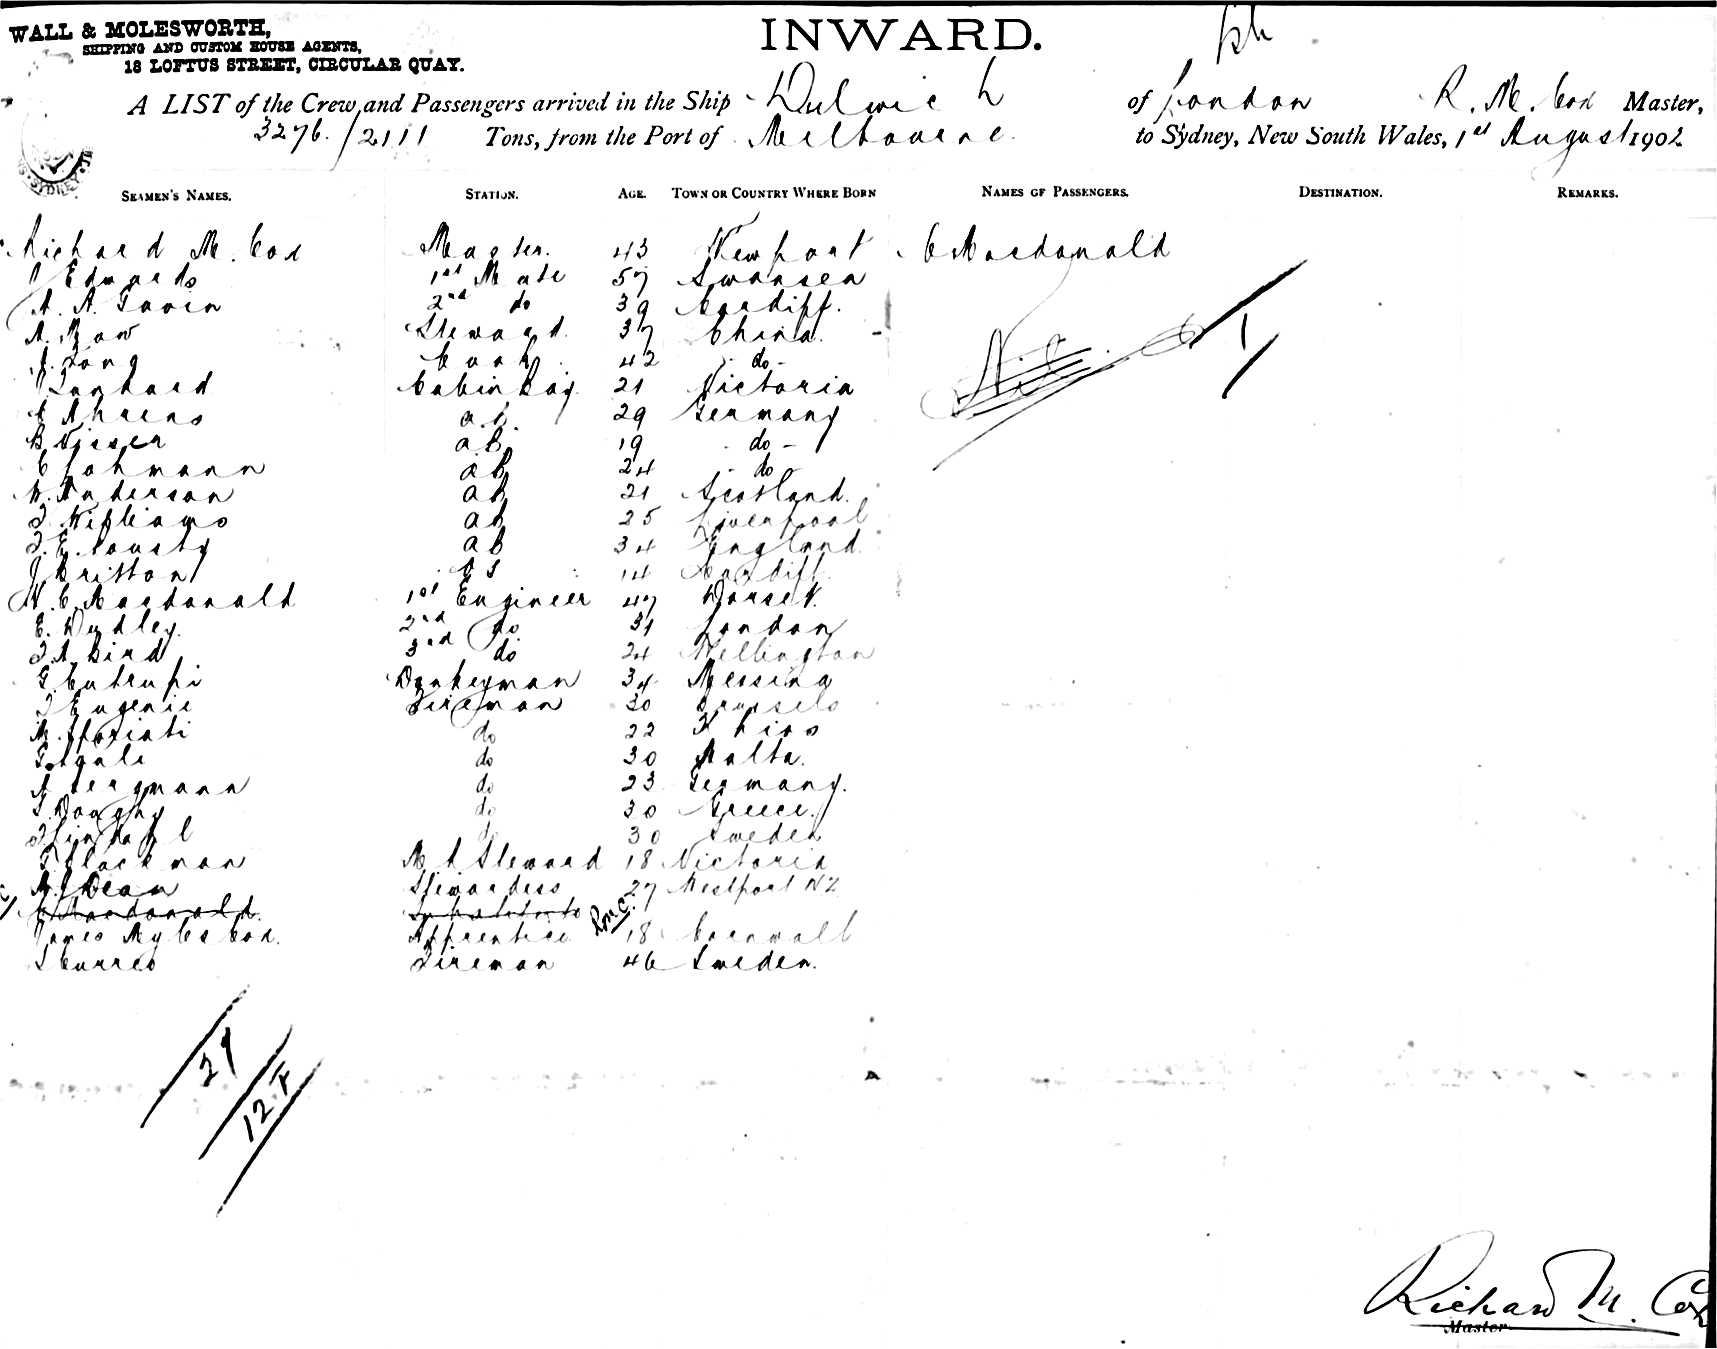 WALL & MOLESWORTH,
SHIPPING AND CUSTOM HOUSE AGENTS,
18 LOFTUS STREET, CIRCULAR QUAY.
INWARD.
A LIST of the Crew and Passengers arrived in the Ship Dulwich of London R. M. Cox Master,
3276./2111 Tons, from the Port of Melbourne. to Sydney, New South Wales, 1st August 1902
SYDNEY
SEAMEN'S NAMES. STATION. AGE. TOWN OR COUNTRY WHERE BORN NAMES OF PASSENGERS. DESTINATION. REMARKS.
Richard M. Cox Master. 43 Newport C Macdonald
Edwards 1st Mate 57 Swansea
A. A. Gavin 2nd do 39 Cardiff.
A. Mow Steward 37 China.
J. Long Cook 42 do-
Lanhard Cabin boy 21 Victoria
C Ahrens a.b. 29 Germany
B Visser a.b. 19 do-
C Lohmann ab 24 do
W. Anderson ab 21 Scotland.
T Williams ab 25 Liverpool
T. E. ab 34 England
J Britton 14 Cardiff.
W. C. Macdonald 1st Engineer 47 Dorset.
E. Dudley. 2nd do 31 London
T A Bird 3rd do 24 Wellington
G Cutrupi Donkeyman 34 Messina
T Eugenie Fireman 30 Brussels
M. do 22 Khios
G. Agale do 30 Malta.
A Bergmann do 23 Germany.
do 30 Greece.
T Lindahl do 30 Sweden
G Blackman M. S. Steward 18 Victoria
M. J Dean Stewardess 27 Westport NZ
C Macdonald. RMC.
James Myles Cox. Apprentice 18 Cornwall
Fireman 46 Sweden.
Nil
1
29
12.
Richard M. Cox
Master